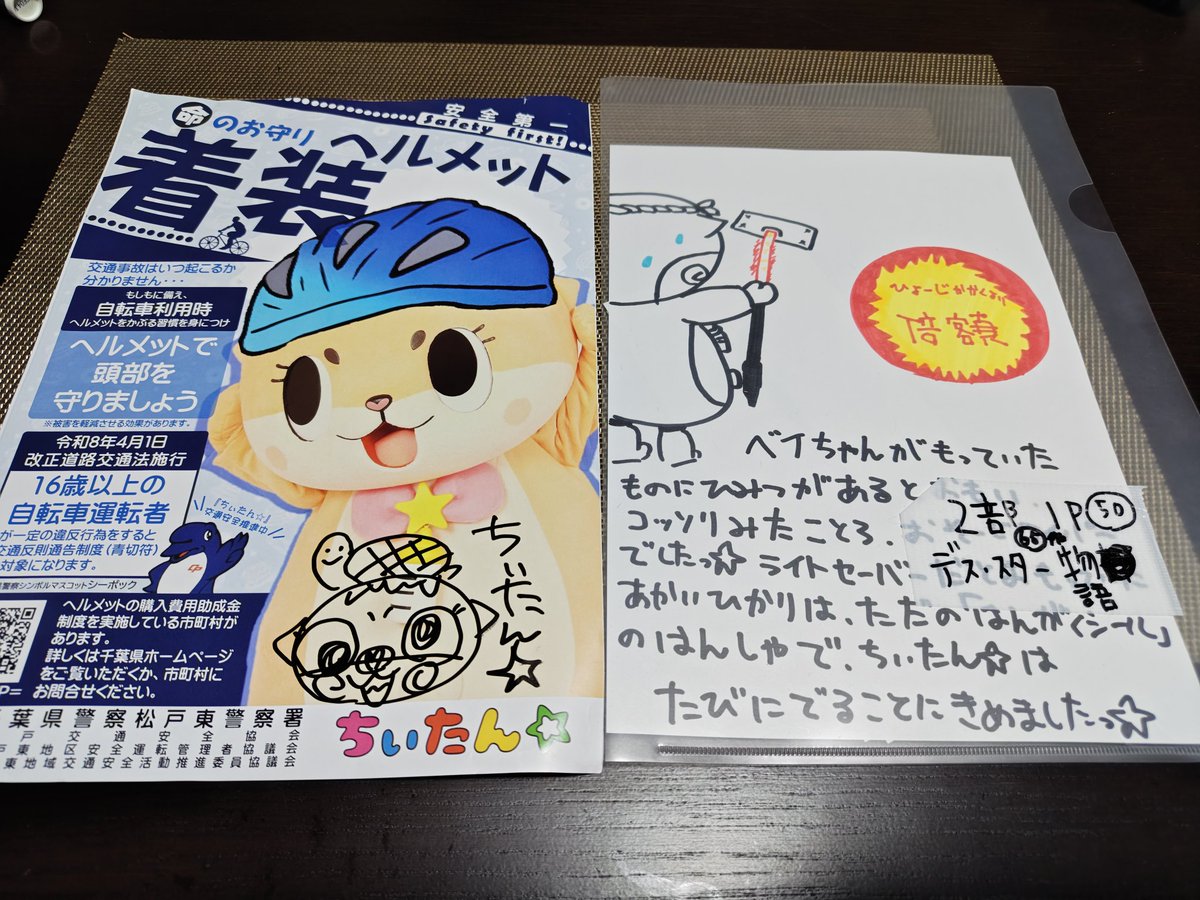 安全第一
Safety first!
命のお守り
ヘルメット
着装
交通事故はいつ起こるか
分かりません・・・
もしもに備え、
自転車利用時
ヘルメットをかぶる習慣を身につけ
ヘルメットで
頭部を
守りましょう
※被害を軽減させる効果があります。
令和8年4月1日
改正道路交通法施行
16歳以上の
自転車運転者
が一定の違反行為をすると
交通反則通告制度(青切符)
対象になります。
『ちぃたん☆』
交通安全推進中!
警察シンボルマスコットシーポック
ヘルメットの購入費用助成金
制度を実施している市町村が
あります。
詳しくは千葉県ホームページ
をご覧いただくか、市町村に
お問合せください。
葉県警察松戸東警察署
戸交通安全協会
戸東地区安全運転管理者協議会
東地域交通安全活動推進委員協議会
ちぃたん☆
ちぃたん☆
ひょーじかかくより
倍額
ベイちゃんがもっていた
ものにひみつがあるとおもい
コッソリみたところ、
でしたっ☆ ライトセーバー
あかいひかりは、ただのはんがくシール
のはんしゃで、ちぃたん☆は
たびにでることにきめましたっ☆
2部 1P 50
デス・スター物
語